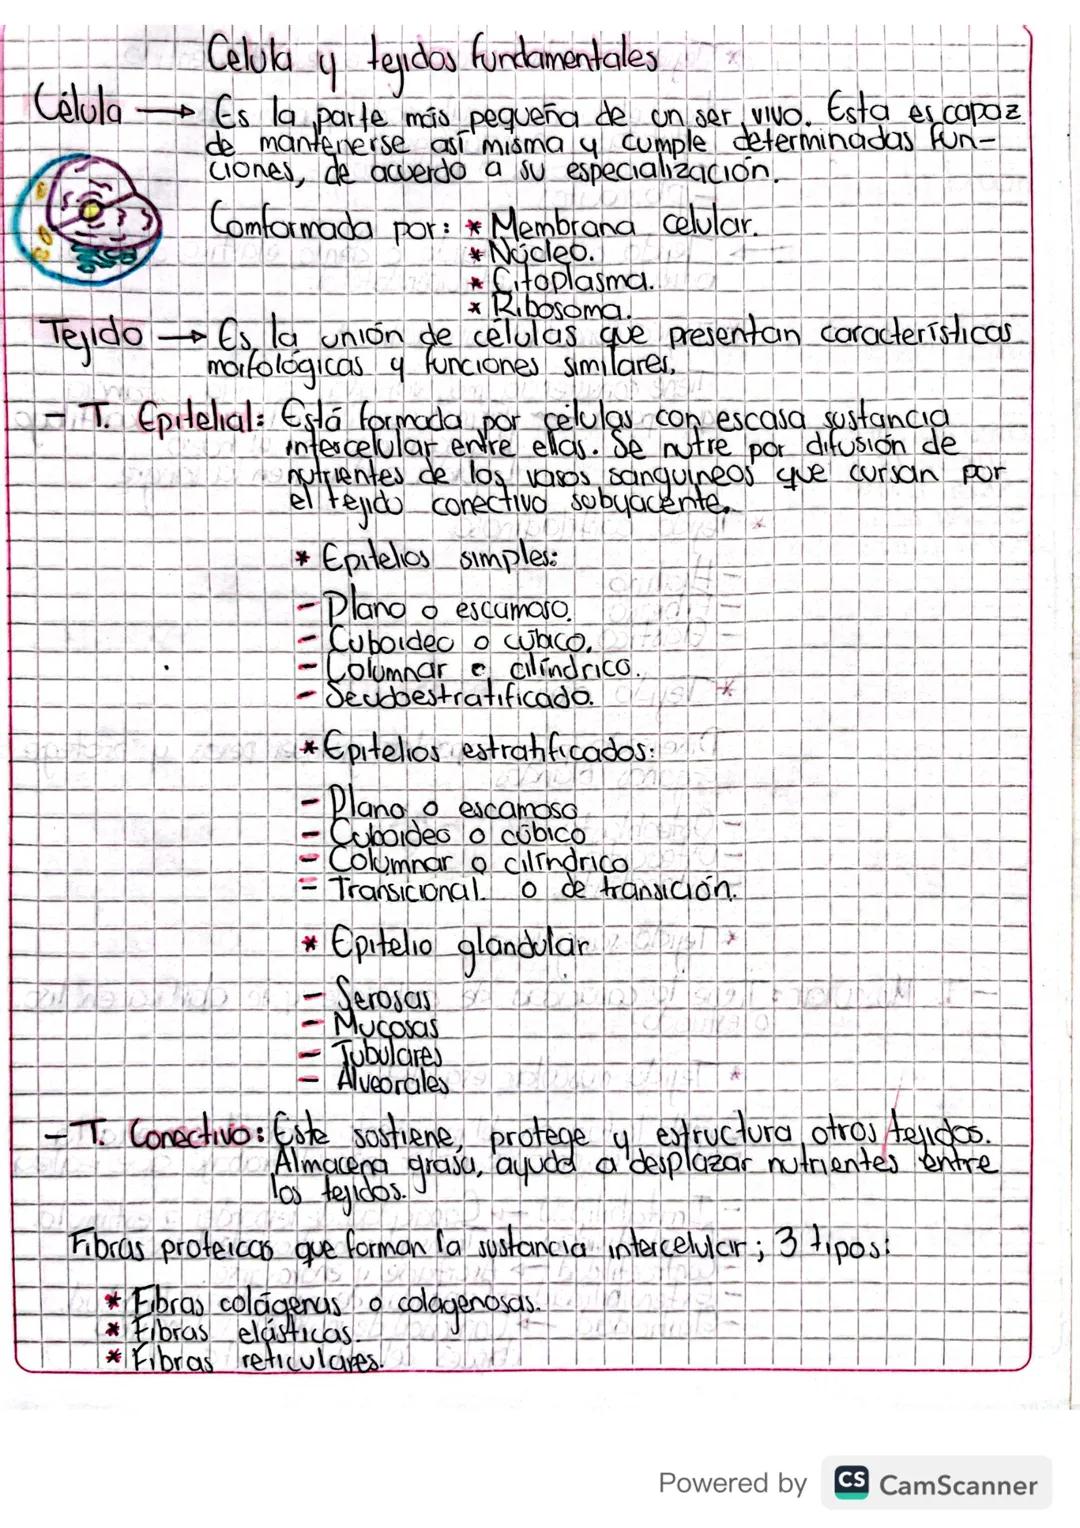 Celula y tejidos fundamentales
Célula → Es la parte más pequeña de un ser vivo. Esta es capaz
de mantenerse así misma y cumple determinadas fun-
ciones, de acuerdo a su especialización.
Comformada por: * Membrana celular.
* Núcleo.
* Citoplasma.
* Ribosoma.
Tejido → Es la unión de células que presentan características
morfológicas y funciones similares.
- T. Epitelial: Está formada por células con escasa sustancia
intercelular entre ellas. Se nutre por difusión de
nutrientes de los vasos sanguineos que cursan por
el tejido conectivo subyacente.
* Epitelios simples:
- Plano o escamoso.
- Cuboideo o cúbico.
- Columnar o cilíndrico.
- Seudoestratificado.
* Epitelios estratificados:
- Plano o escamoso
- Cuboideo o cúbico
- Columnar o cilíndrico
- Transicional o de transición.
* Epitelio glandular
- Serosas
- Mucosas
- Tubulares
- Alveorales
- T. Conectivo: Este sostiene, protege y estructura otros tejidos.
Almacena grasa, ayuda a desplazar nutrientes entre
los tejidos.
Fibras proteicas que forman la sustancia intercelular; 3 tipos:
* Fibras colágenas o colagenosas.
* Fibras elásticas.
* Fibras reticulares.
Powered by CS CamScanner